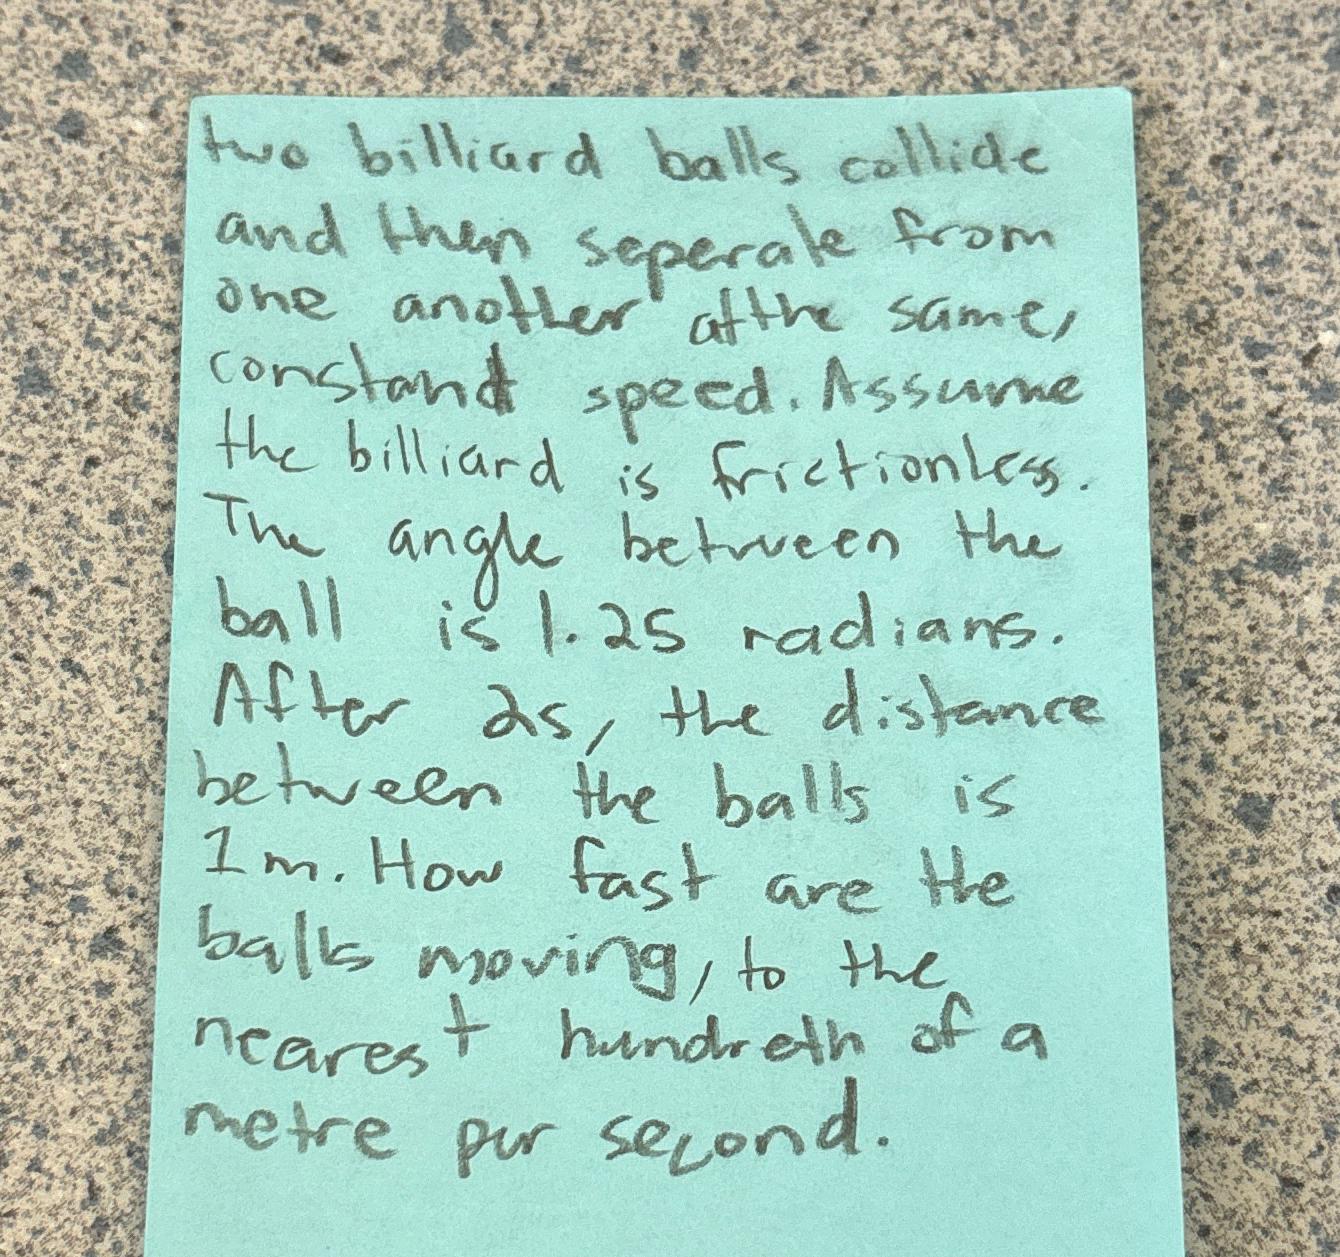 two billiard balls collide
and then seperate from
one another at the same,
constant speed. Assume
the billiard is frictionless.
The angle between the
ball is 1.25 radians.
After 2s, the distance
between the balls is
1m. How fast are the
balls moving, to the
nearest hundreth of a
metre per second.